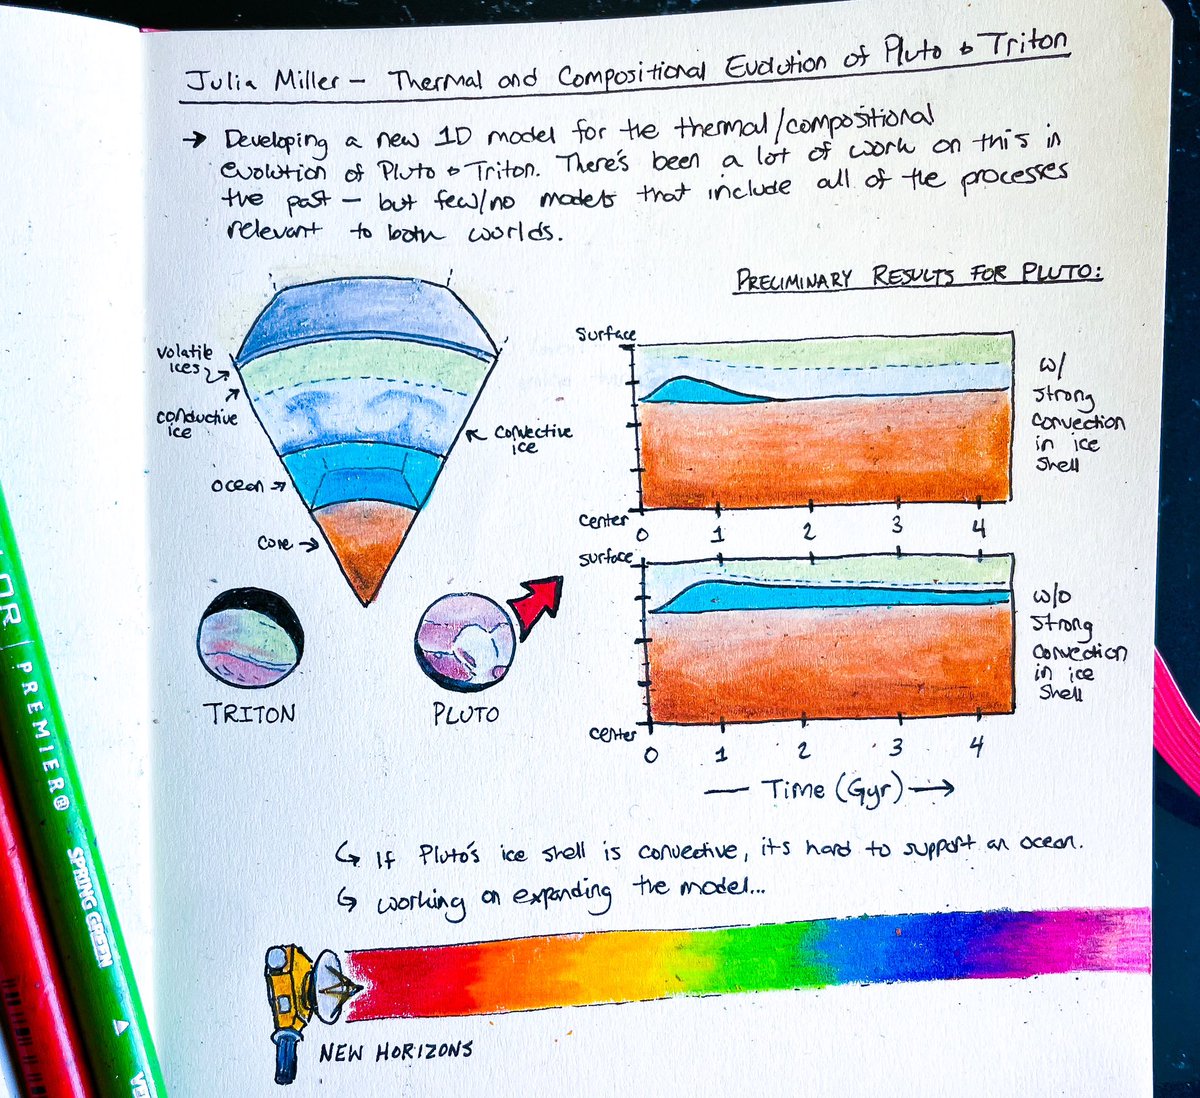 Julia Miller — Thermal and Compositional Evolution of Pluto & Triton
→ Developing a new 1D model for the thermal/compositional
evolution of Pluto & Triton. There's been a lot of work on this in
the past — but few/no models that include all of the processes
relevant to both worlds.
PRELIMINARY RESULTS FOR PLUTO:
Volatile
ices
conductive
ice
Convective
ice
Ocean
Core
TRITON
PLUTO
Surface
Center
0 1 2 3 4
w/
strong
convection
in ice
shell
Surface
Center
0 1 2 3 4
w/o
strong
convection
in ice
shell
— Time (Gyr) →
↳ If Pluto's ice shell is convective, it's hard to support an ocean.
↳ working on expanding the model...
NEW HORIZONS
PREMIER®
SPRING GREEN